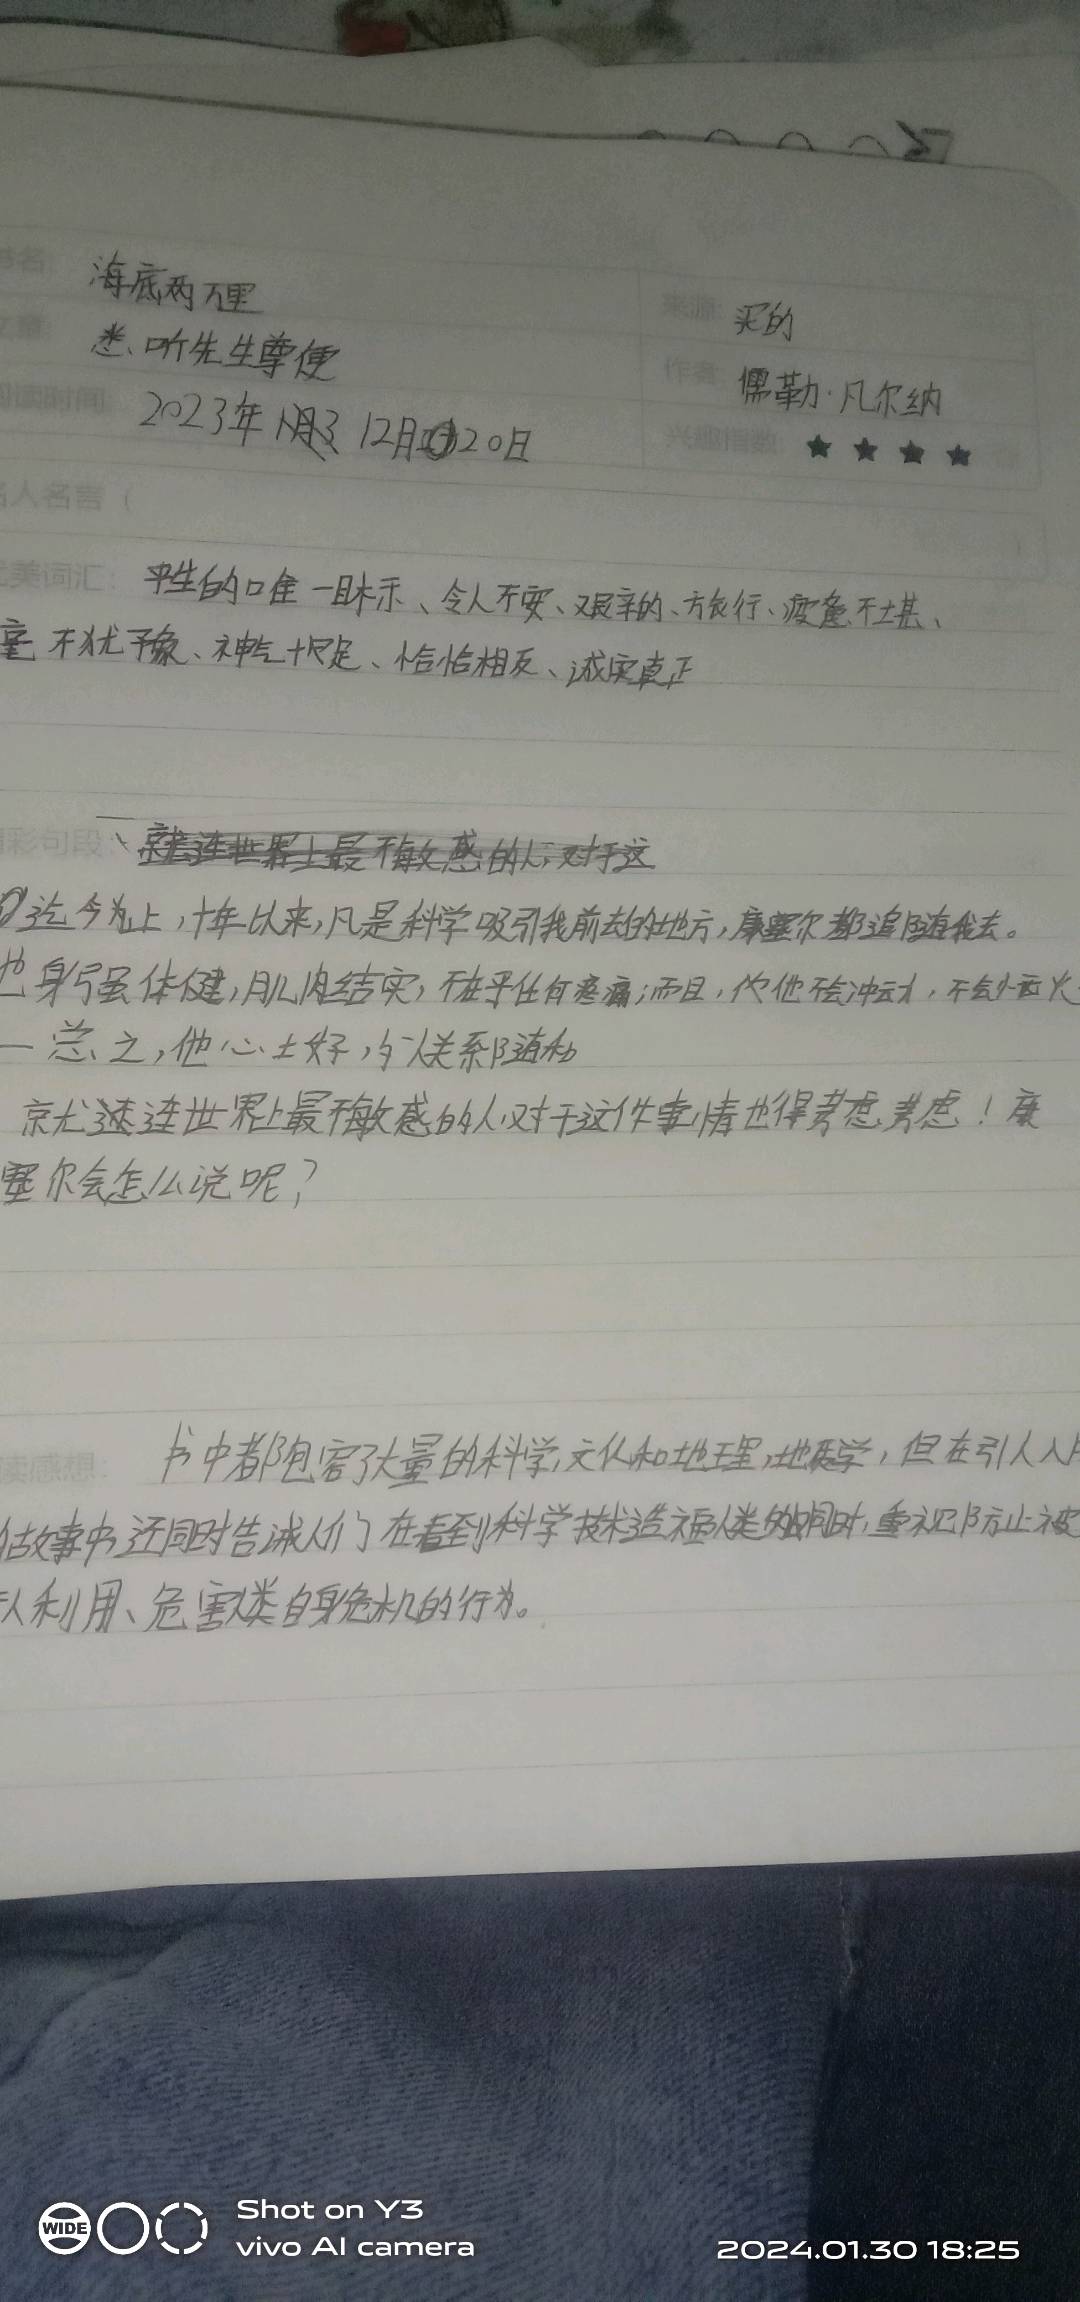 书名 海底两万里 来源: 买的
文章 悉听先生尊便 作者: 儒勒·凡尔纳
阅读时间 2023年 12月20日 兴趣指数: ★ ★ ★ ★
名人名言（
优美词汇： 平生的唯一目标、令人不安、艰辛的、旅行、疲惫不堪、
毫不犹予象、神气十足、恰恰相反、诚实真正
精彩句段： 就连世界上最不敏感的人，对于这
①迄今为止，十年以来，凡是科学吸引我前去的地方，康塞尔都追随我去。
他身强体健，肌肉结实，不在乎任何疼痛；而且，他不会冲动，不会
—总之，他心土好，与人关系随和
就连世界上最不敏感的人对于这件事情也得考虑考虑！康
塞尔会怎么说呢？
读感想: 书中都包容了大量的科学，文化和地理，地质学，但在引人入
故事中还同时告诫人们在看到科学技术造福人类的同时，重视防止被
人利用、危害人类自身危机的行为。
WIDE
Shot on Y3
vivo AI camera
2024.01.30 18:25